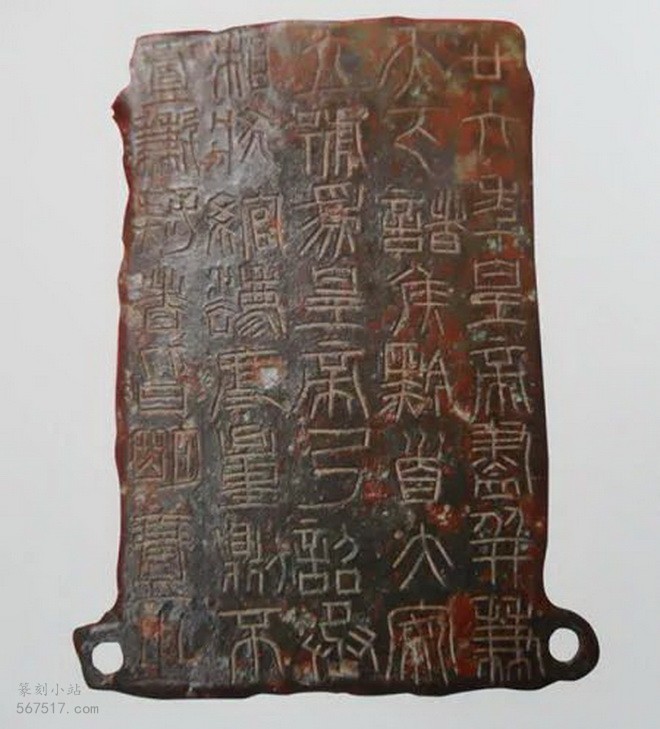 廿六年皇帝盡并兼
天下諸侯黔首大安
立號爲皇帝乃詔丞
相狀綰灋度量則不
壹歉疑者皆明壹之
篆刻小站
567517.com